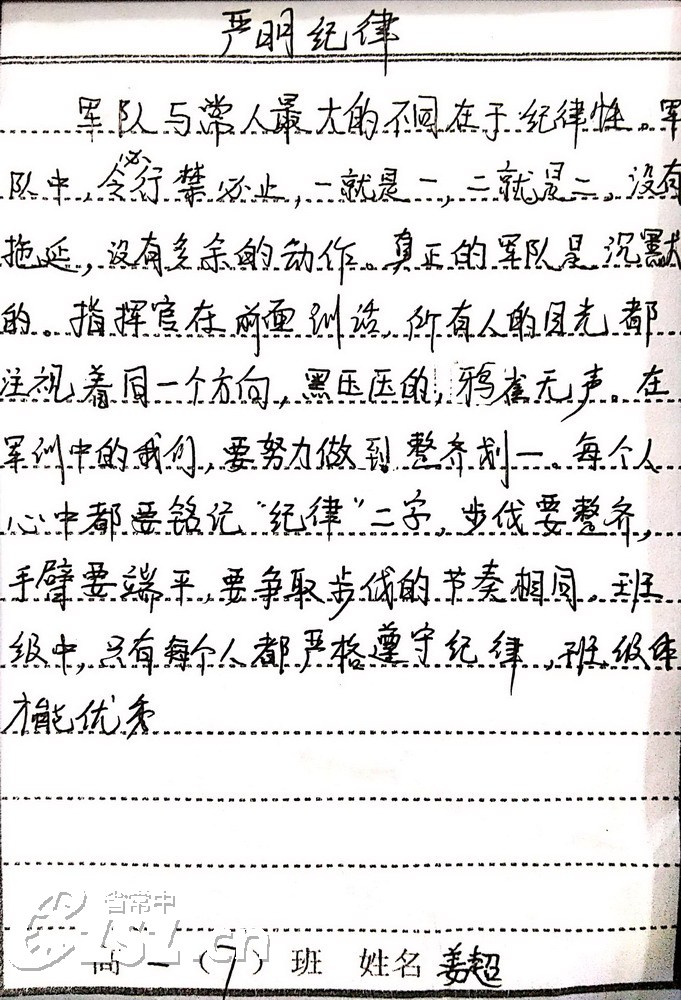 严明纪律
军队与常人最大的不同在于纪律性。军
队中,令必行禁必止,一就是一,二就是二,没有
拖延,没有多余的动作。真正的军队是沉默
的。指挥官在前面训话,所有人的目光都
注视着同一个方向,黑压压的,鸦雀无声。在
军训中的我们,要努力做到整齐划一。每个人
心中都要铭记“纪律”二字。步伐要整齐,
手臂要端平,要争取步伐的节奏相同。班
级中,只有每个人都严格遵守纪律,班级体
才能优秀
省常中
CZ151.cn
高一(7)班 姓名 姜超